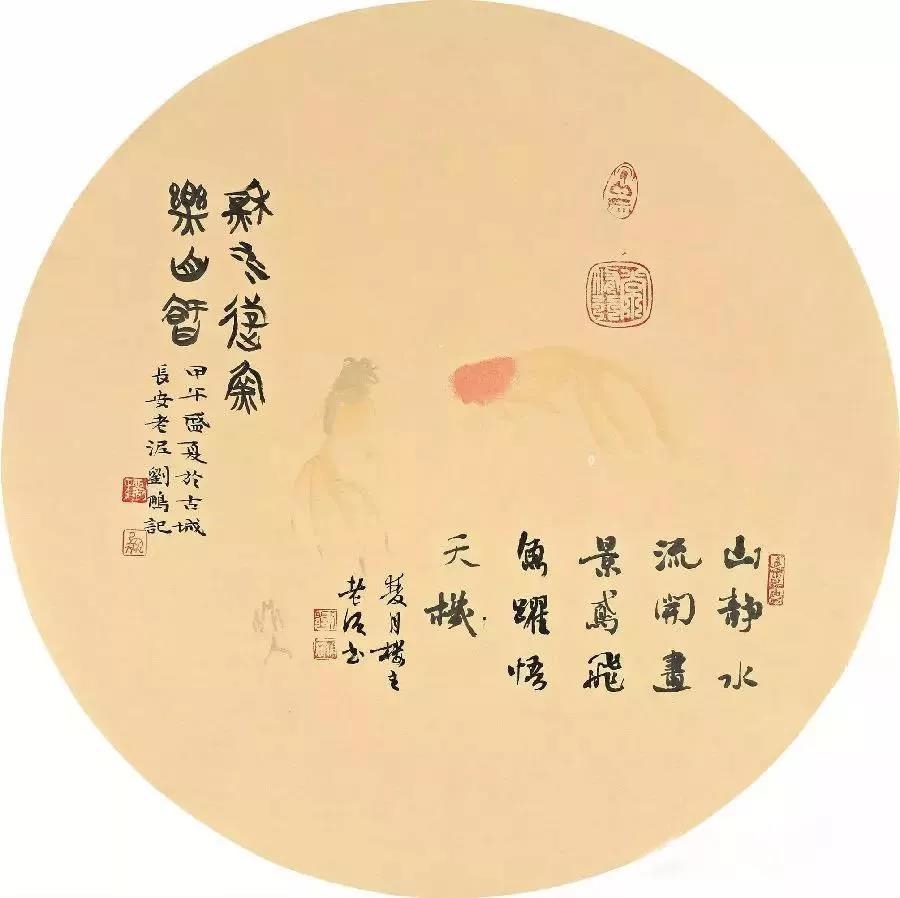 山靜水
流開畫
景鳶飛
魚躍悟
天機
月樓主
老泥書
德
樂山
甲午盛夏於古城
長安老泥劉鵬記